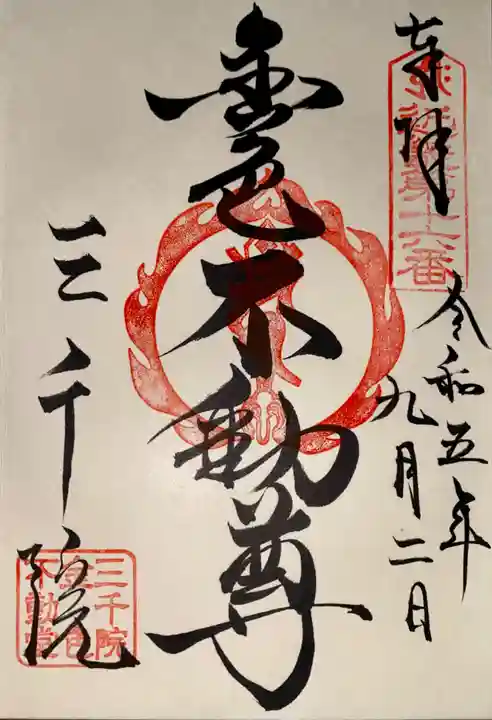 奉拝
令和五年
九月二日
金色不動尊
三千院
三千院
金色
不動堂